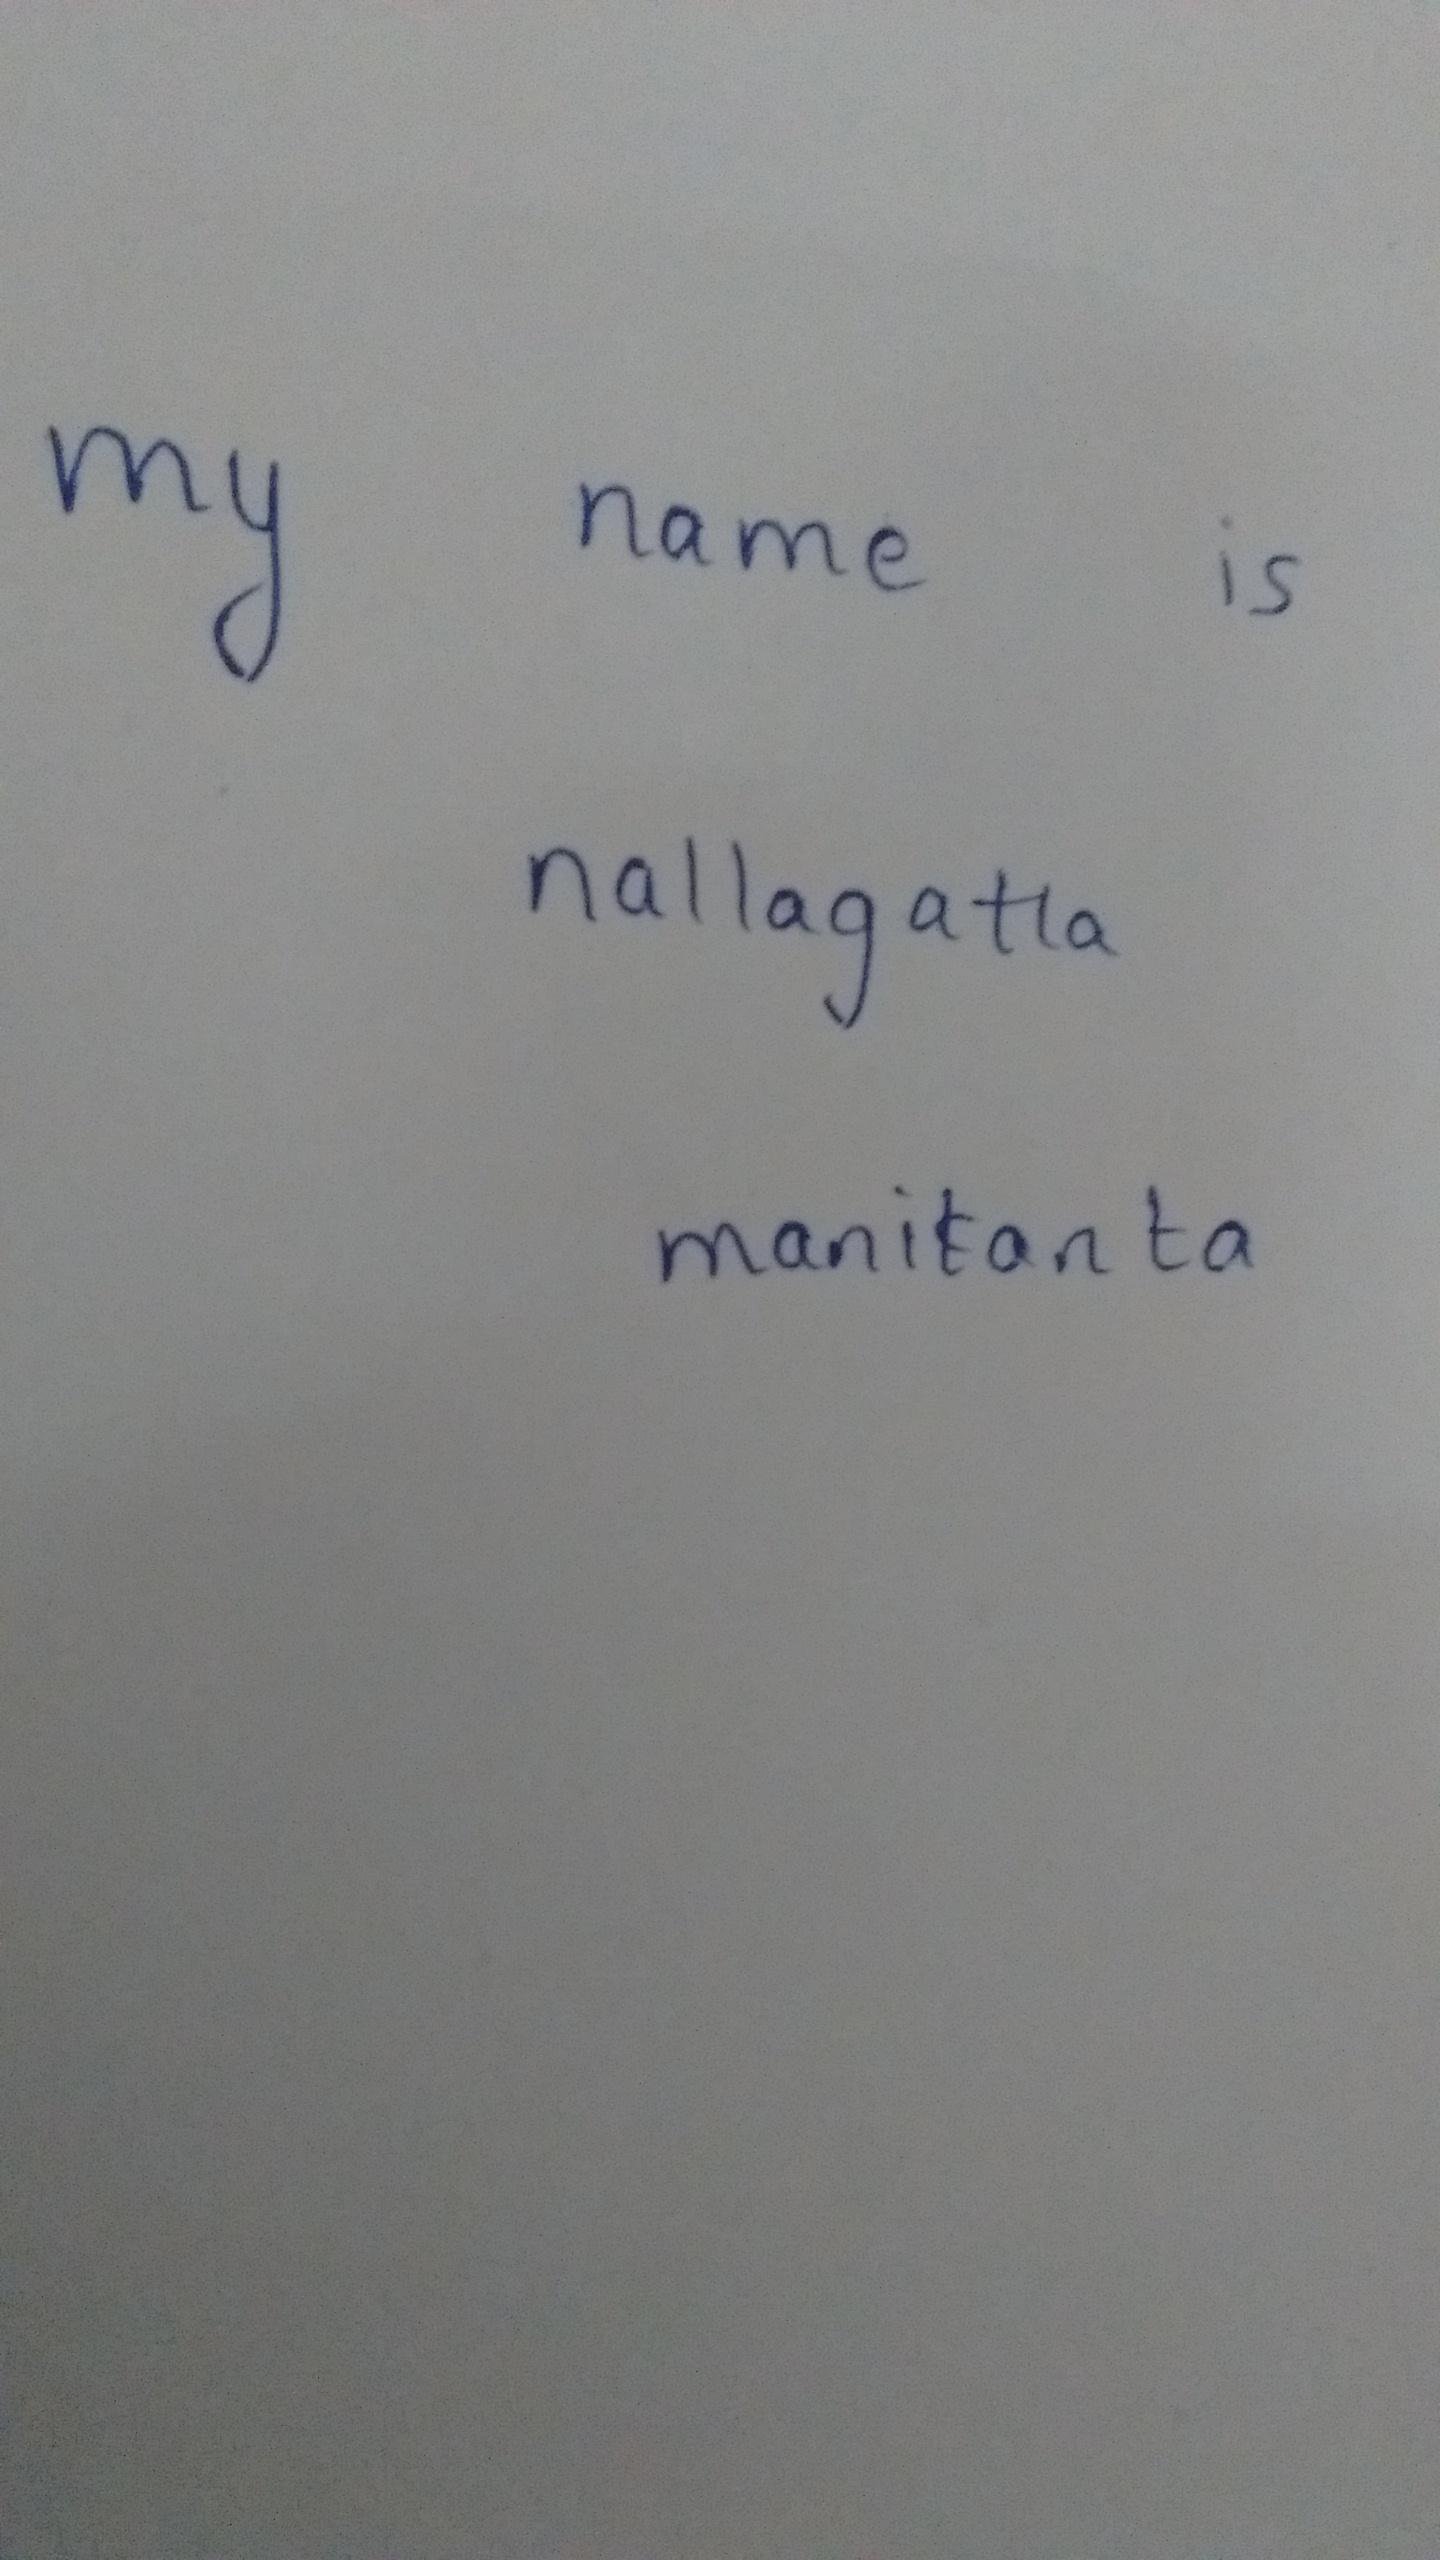 my name is
nallagatla
manikanta